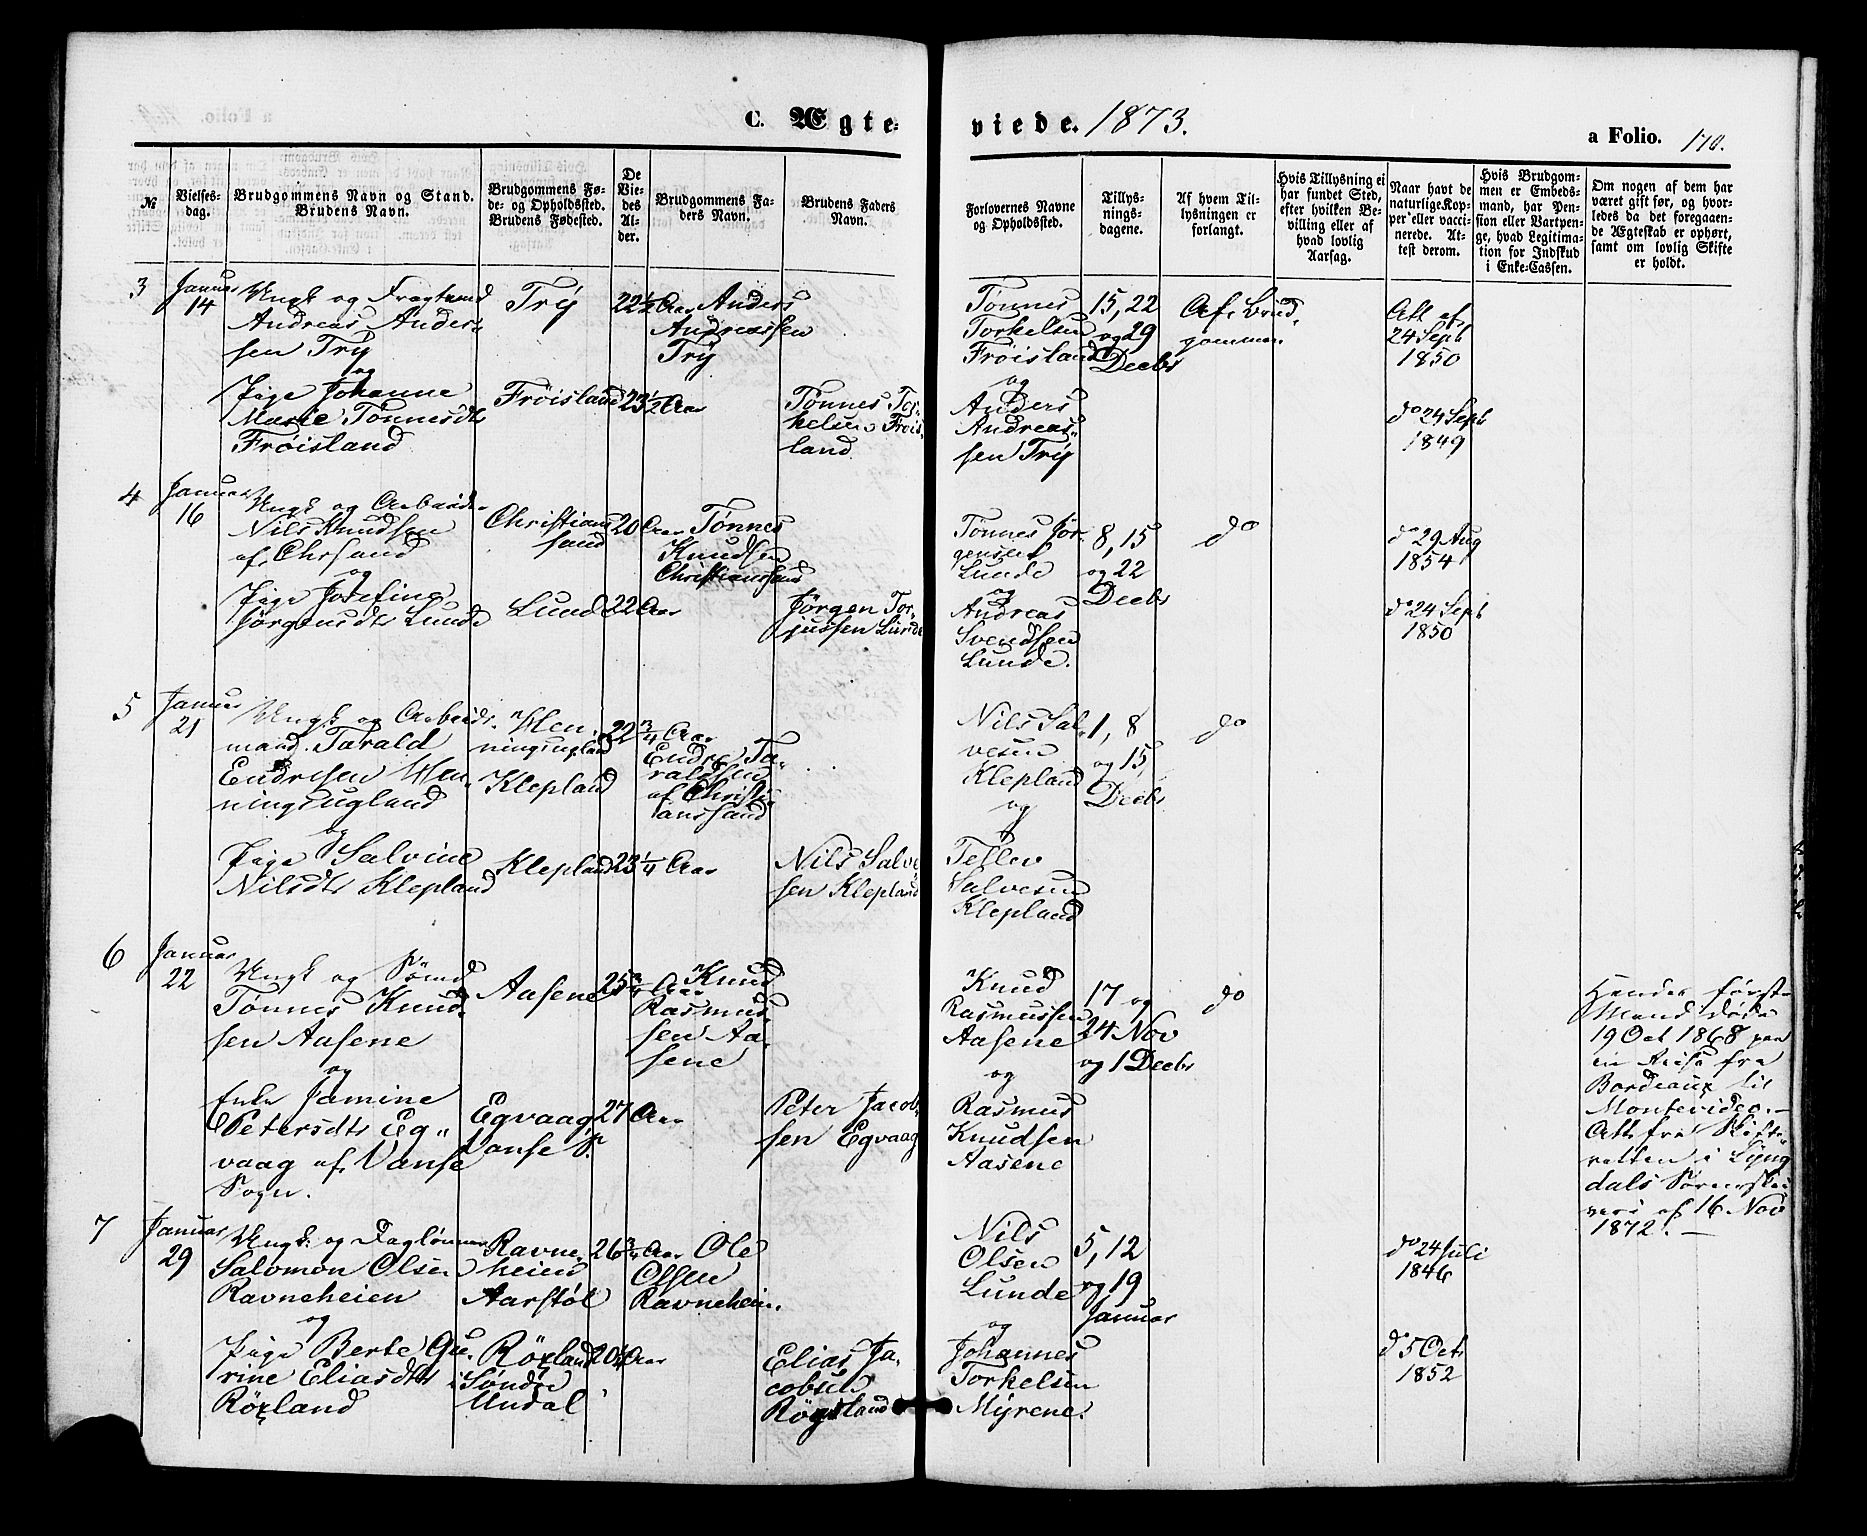 C. Ægte-
viede. 1873.
a Folio. 170.
№
Vielses-
dag.
Brudgommens Navn og Stand.
Brudens Navn.
Brudgommens Fø-
de- og Opholdssted.
Brudens Fødested.
De
Vie-
des
Al-
der.
Brudgommens Fa-
ders Navn.
Brudens Faders
Navn.
Forlovernes Navne
og Opholdssted.
Tillys-
nings-
dagene.
Af hvem Til-
lysningen er
forlangt.
Hvis Tillysning ei
har fundet Sted,
efter hvilken Be-
villing eller af
hvad lovlig
Aarsag.
Naar havt de
naturlige Kop-
per eller vacci-
nerede. At-
test derom.
Hvis Brudgom-
men er Embeds-
mand, har Pen-
sion eller Vartpen-
ge, hvad Legitima-
tion for Indskud
i Enke-Cassen.
Om nogen af dem har
været gift før, og hvor-
ledes da det foregaaen-
de Ægteskab er ophørt,
samt om lovlig Skifte
er holdt.
3
Januar
14
Ungk og
Andreas Anders
sen Try
og
Pige Johanne
Marie Tønnesdtr
Frøisland
Try
Frøisland
22½ Aar
23½ Aar
Anders
Andreassen
Try
Tønnes Tor-
kelsen Frøis-
land
Tønnes
Torkelsen
Frøisland
og
Anders
Andreas-
sen Try
15, 22
og 29
Decbr
Af Brud-
gommen
Att af
24 Sept
1850
do 24 Sept
1849
4
Januar
16
Ungk og Arbeids-
Nils Knudsen
af Chrsand
og
Pige Josefine
Jørgensdtr Lunde
Christian
sand
Lund
20 Aar
22 Aar
Tønnes
Knudsen
Christianssand
Jørgen Tor-
jussen Lunde
Tønnes Jør-
gensen
Lunde
og
Andreas
Svendsen
Lunde.
8, 15
og 22
Decbr
do
do 29 Aug
1854
do 24 Sept
1850
5
Januar
21
Ungk og Arbeids-
mand Tarald
Endresen Hen-
ningsugland
og
Pige Salvine
Nilsdtr Klepland
Hen-
ningsugland
Klepland
Klepland
22¾ Aar
23¼ Aar
Endre Ta-
raldsen
af Christi-
anssand
Nils Salve
sen Klepland
Nils Sal-
vesen
Klepland
og
Tellev
Salvesen
Klepland
1, 8
og 15
Decbr
do
6
Januar
22
Ungk og Sømd
Tønnes Knud-
sen Aasene
og
Enke Jamine
Petersdtr Eg-
vaag af Vanse
Sogn.
Aasene
Egvaag
Vanse S.
25¾ Aar
27 Aar
Knud
Rasmus-
sen Aa-
sene
Peter Jacob-
sen Egvaag
Knud
Rasmussen
Aasene
og
Rasmus
Knudsen
Aasene
17 og
24 Nov
og 1 Decbr
do
Hendes første
Mand døde
19 Oct 1868 paa
en Reise fra
Bordeaux til
Montevideo.—
Att fra Skifte-
retten i Lyng
dals Sorenskri
veri af 16 Nov
1872.—
7
Januar
29
Ungk. og Dagløner
Salomon Olsen
Ravneheien
og
Pige Berte Gu-
rine Eliasdtr
Röxland
Ravne-
heien
Aarstøl
Röxland
i Søndre
Undal
26¾ Aar
20¼ Aar
Ole
Olsen
Ravneheien.
Elias Ja-
cobsen
Nils
Olsen
Lunde
og
Johannes
Torkelsen
Myrene.
5, 12
og 19
Januar
do 24 Juli
1846
do 5 Octr
1852